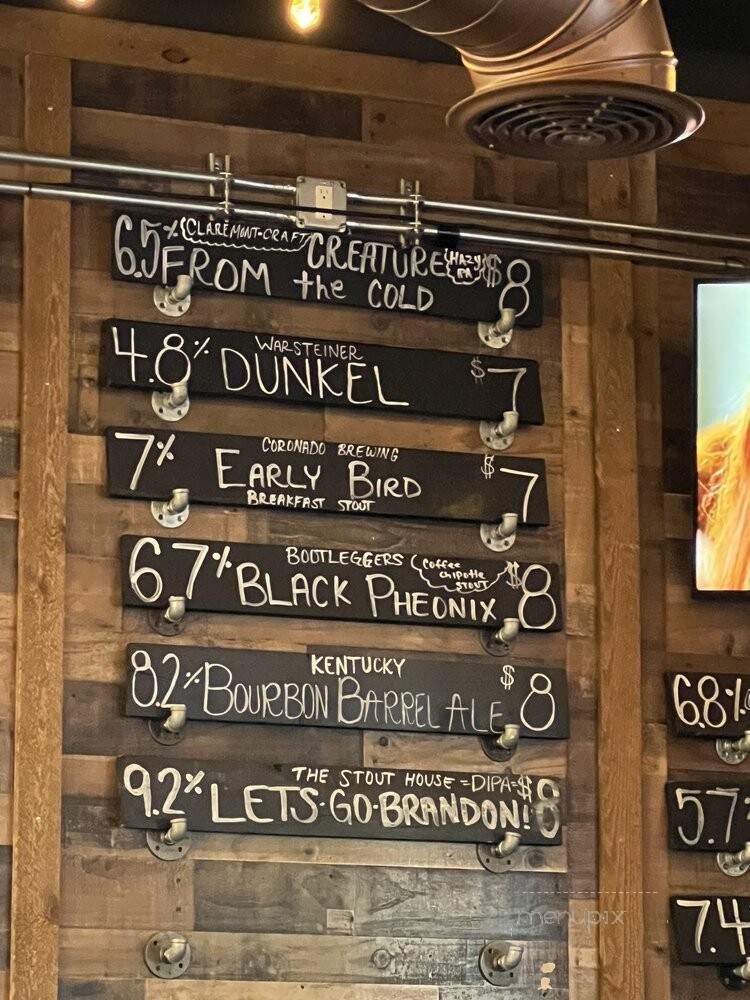 6.5% CLAREMONT CRAFT
CREATURE HAZY IPA $8
FROM the COLD
WARSTEINER
4.8% DUNKEL $7
CORONADO BREWING
7% EARLY BIRD $7
BREAKFAST STOUT
BOOTLEGGERS Coffee chipotle STOUT
6.7% BLACK PHEONIX $8
KENTUCKY
8.2% BOURBON BARREL ALE $8
THE STOUT HOUSE =DIPA=
9.2% LETS·GO·BRANDON! $8
6.8%
5.7
7.4
menupix